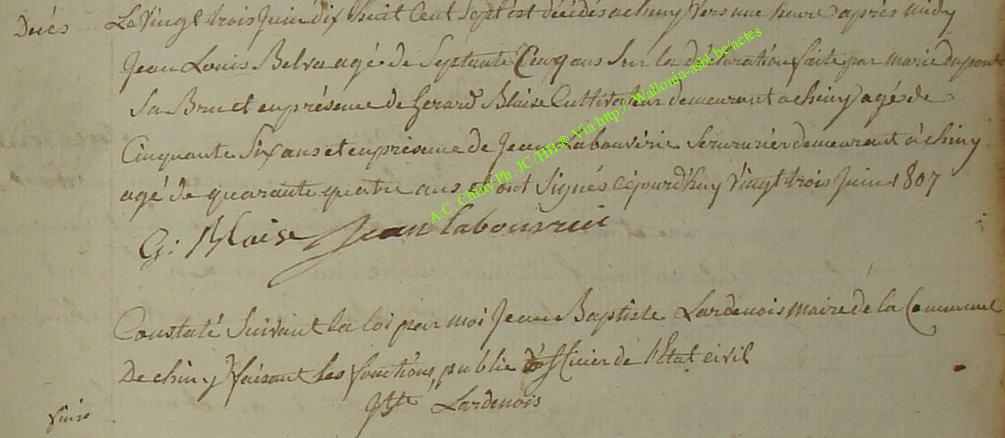 Décés
Le Vingt trois Juin dix huit Cent Sept est décédés a chiny Vers une heure d'aprés midy
Jean Louis Belva agé de Septante Cinq ans Sur la déclaration faite par marie dupont
Sa Bru et en présence de Gerard Blaise Cultivateur demeurant a chiny agé de
Cinquante Six ans et en présence de Jean Labouvérie Serrurier demeurant à chiny
agé de quarante quatre ans et ont Signés cejourd'huy Vingt trois Juin 1807
G: Blaise Jean labouvrie
Constaté Suivant la loi par moi Jean Baptiste Lardenois maire de la Commune
De chiny faisant les fonctions public d'officier de l'Etat civil
Lardenois
A.C. Chiny Ph. JC/HB® Via http://Wallonia-asbl.be/actes